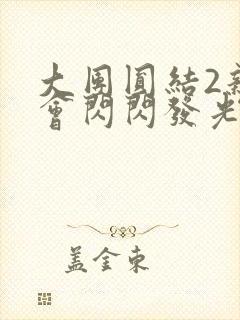 大團圓結2新
會閃閃發光
蓋金東